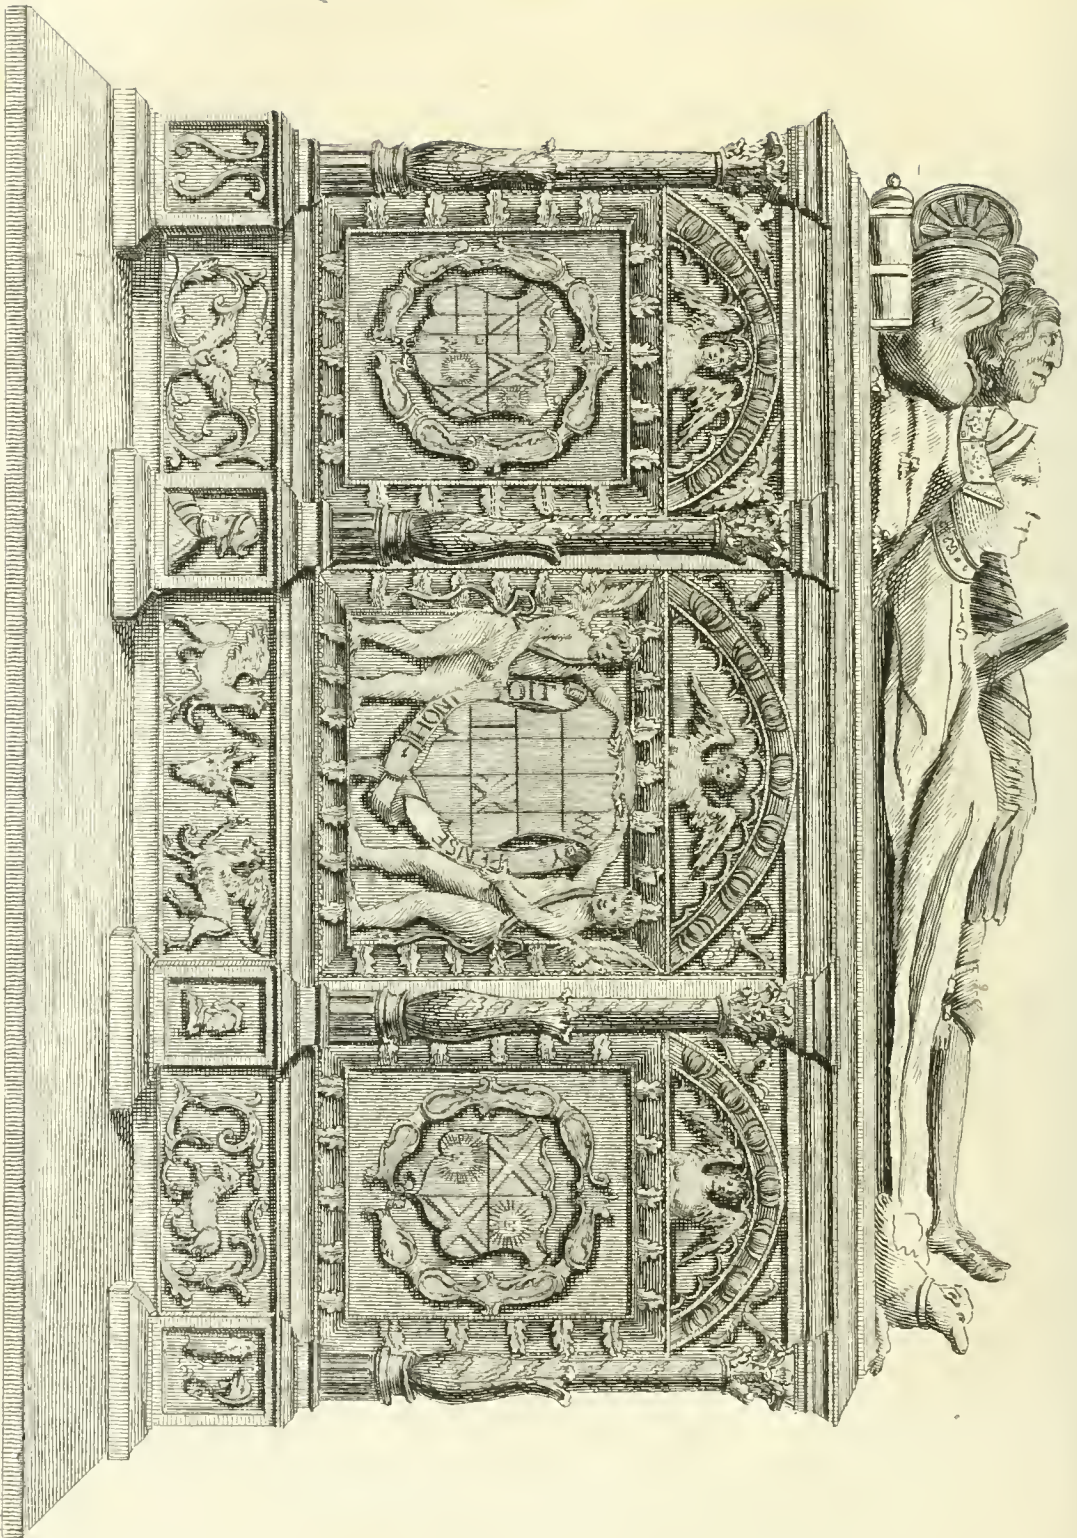 HONI SOIT
Y PENSE